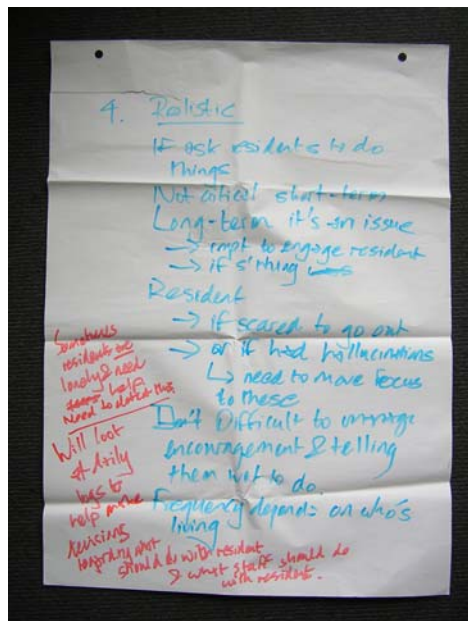 4. Realistic
If ask residents to do
things
Not critical short-term
Long-term it's an issue
→ impt to engage resident
→ if s'thing
Resident
→ if scared to go out
→ or if had hallucinations
↳ need to move focus
to these
Difficult to
encouragement & telling
them what to do.
Frequency depends on who's
living
Sometimes
residents are
lonely & need
help
Need to detect this
Will look
at daily
logs to
help make
decisions
regarding what
should do with resident
& what staff should do
with resident.